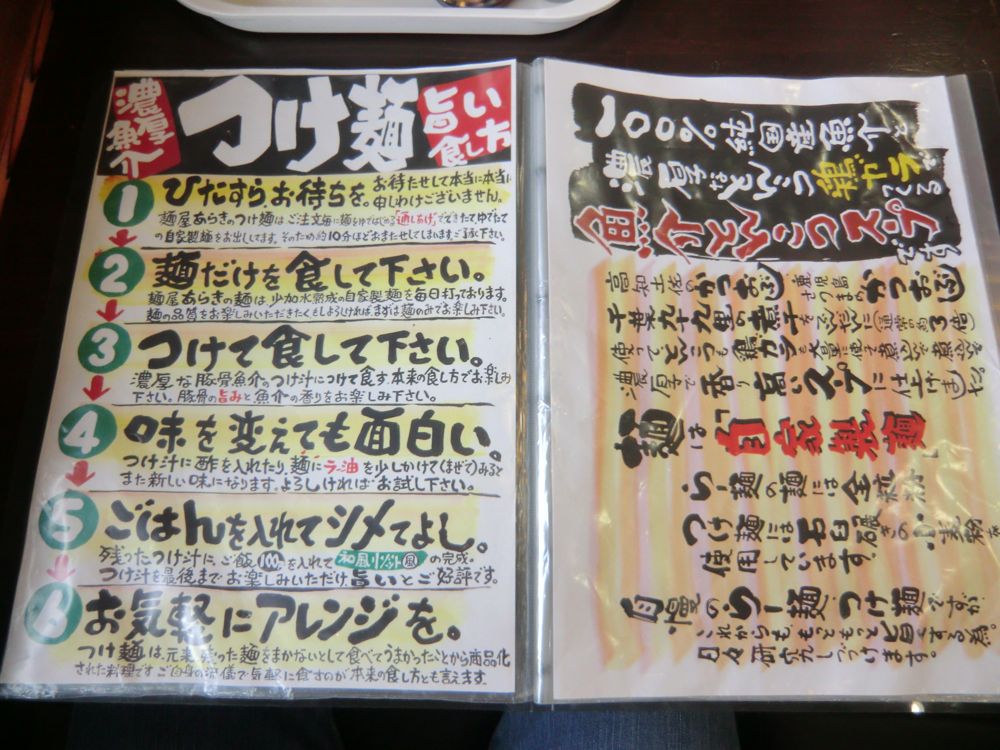 濃厚
魚介
つけ麺
旨い
食し方
1 ひたすらお待ちを。
お待たせして本当に本当に
申しわけございません。
麺屋あらきのつけ麺はご注文毎に麺をゆではじめる"通しあげ"でできたてゆでたて
の自家製麺をお出ししてます。そのため約10分ほどおまたせしてしまいます。ご了承下さい。
2 麺だけを食して下さい。
麺屋あらきの麺は、少加水熟成の自家製麺を毎日打っております。
麺の品質をお楽しみいただきたくもしよろしければ、まずは麺のみでお楽しみ下さい。
3 つけて食して下さい。
濃厚な豚骨魚介のつけ汁につけて食す、本来の食し方でお楽しみ
下さい。豚骨の旨みと魚介の香りをお楽しみ下さい。
4 味を変えても面白い。
つけ汁に酢を入れたり、麺にラー油を少しかけて(まぜて)みると
また新しい味になります。よろしければお試し下さい。
5 ごはんを入れてシメてよし。
残ったつけ汁に、ご飯100円を入れて和風リゾット風の完成。
つけ汁を最後までお楽しみいただけ、旨いとご好評です。
6 お気軽にアレンジを。
つけ麺は、元来残った麺をまかないとして食べてうまかったことから商品化
された料理です。ご自身の流儀で気軽に食すのが本来の食し方とも言えます。
一〇〇%純国産魚介と
濃厚なとんこつ鶏ガラ
魚介とんこつスープです
高知土佐のかつおぶし
鹿児島さつまのかつおぶし
千葉九十九里の煮干をふんだんに(通常の約3倍)
使ってとんこつも鶏ガラも大量に使って
濃厚で香り高いスープに仕上げました。
麺は「自家製麺」
らー麺の麺には全粒粉
つけ麺には石臼碾き小麦粉を
使用しています。
自慢のらー麺つけ麺ですが
これからも、もっともっと旨くする為。
日々研究しつづけます。